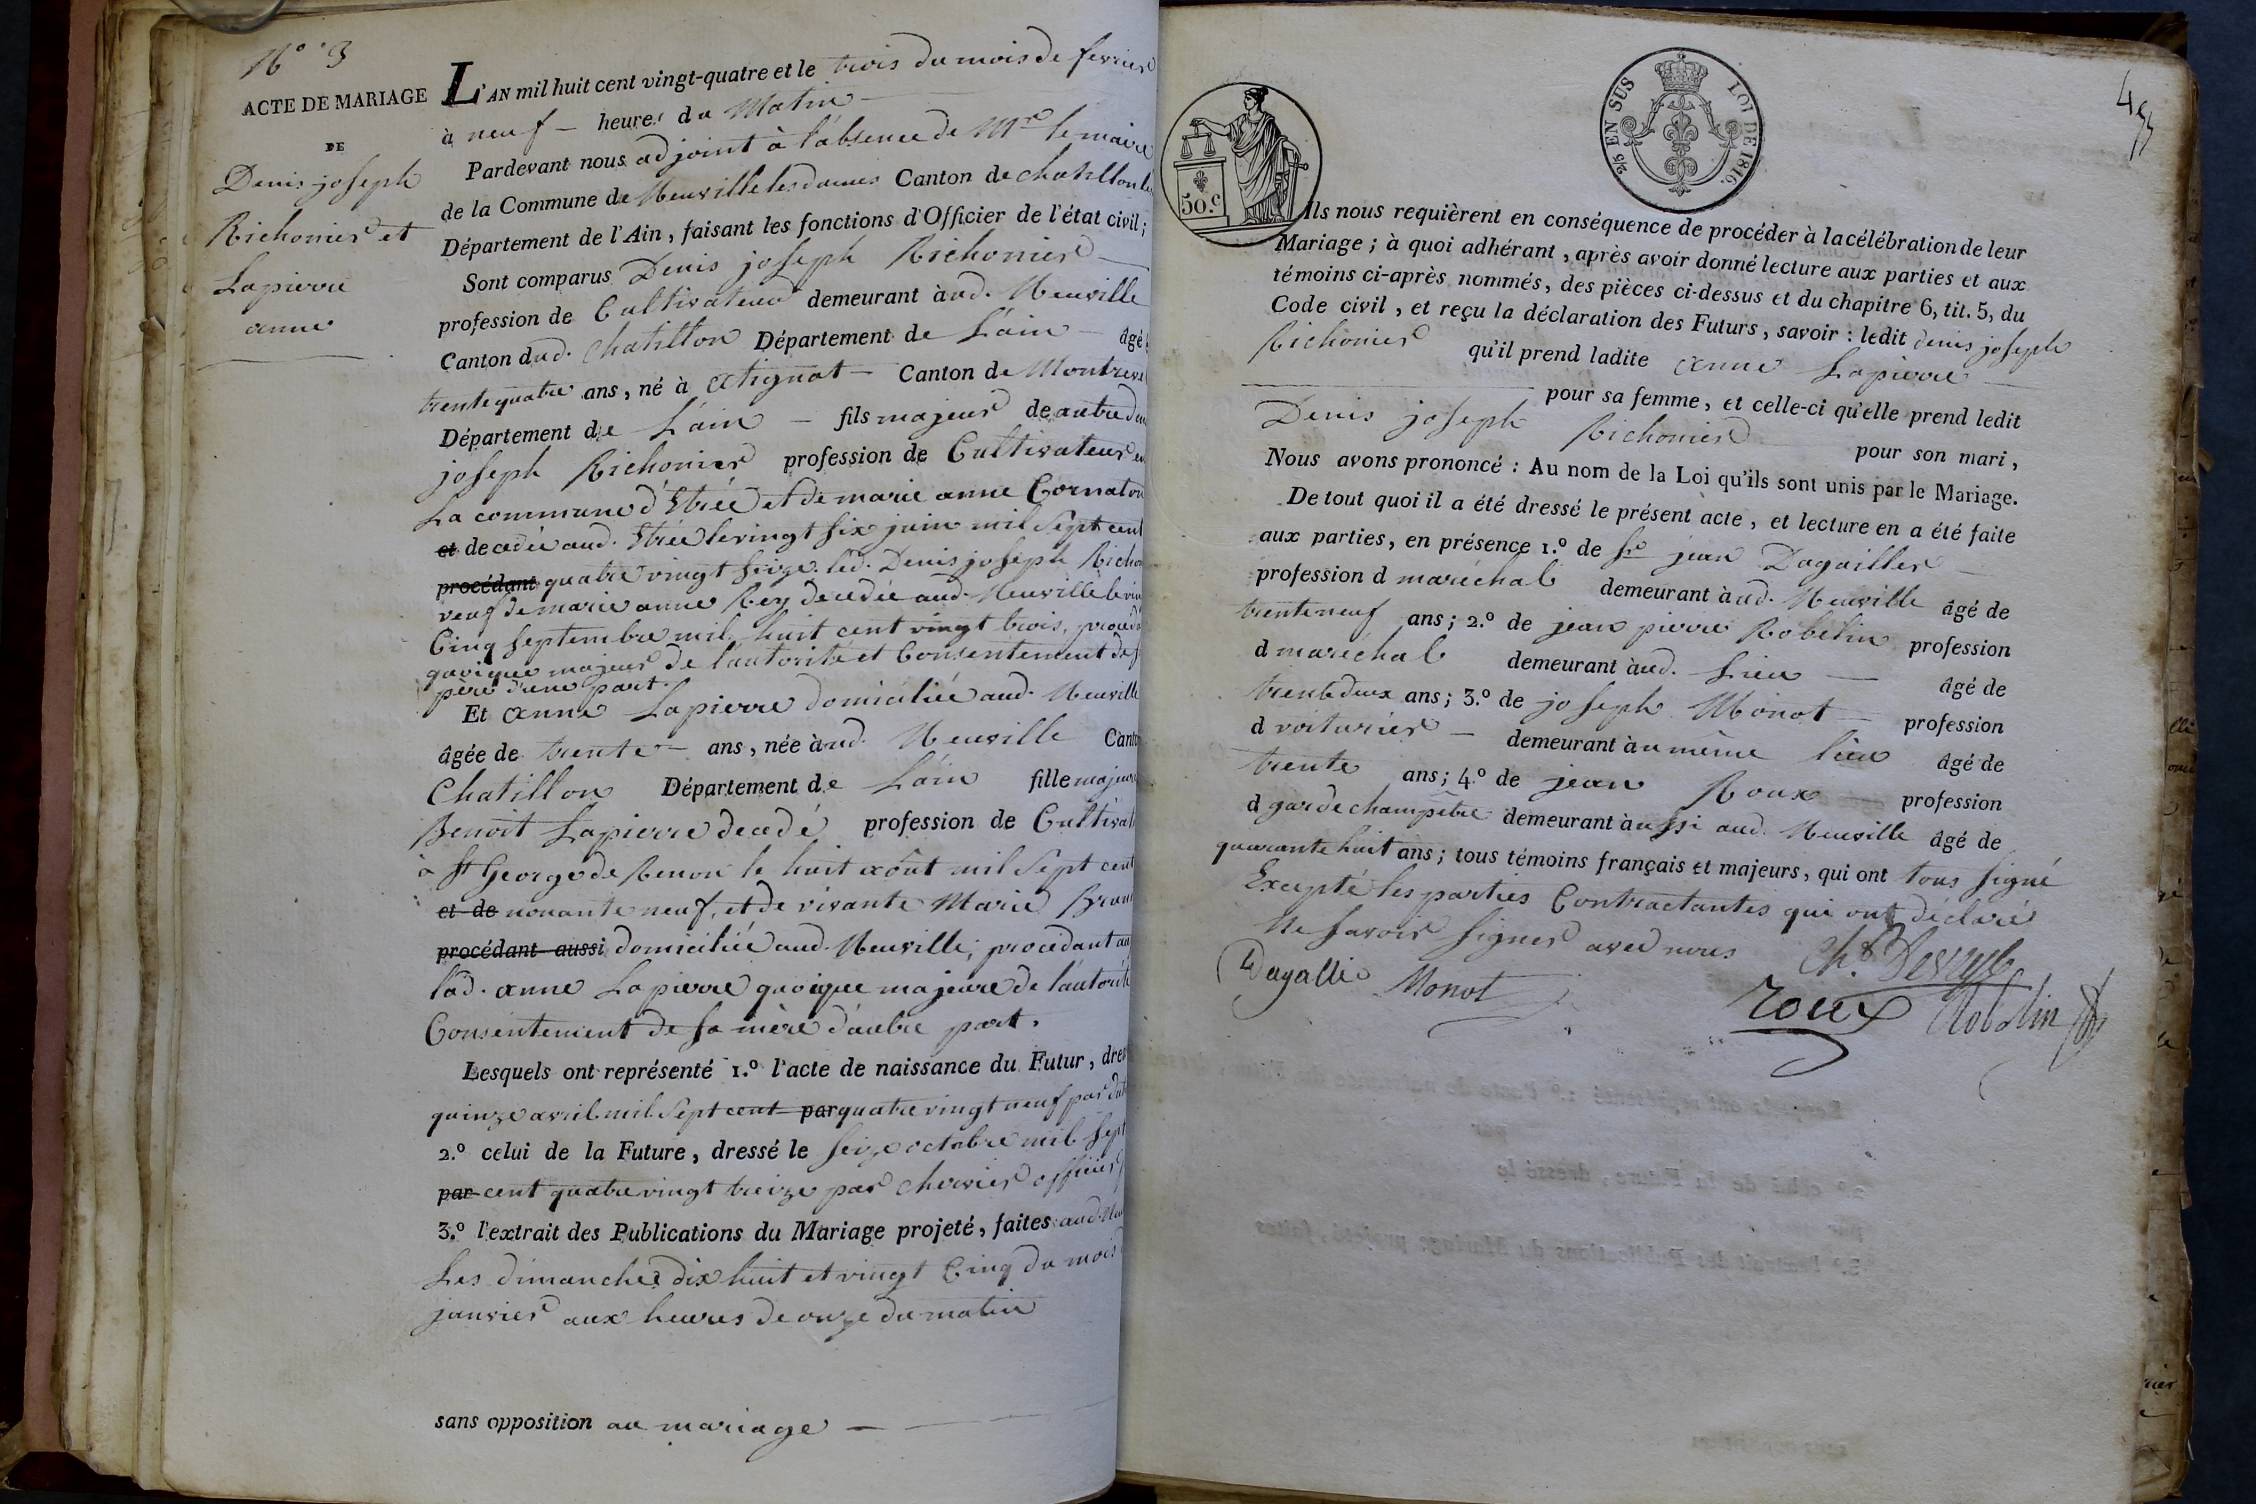 N° 3
ACTE DE MARIAGE
DE
Denis joseph
Richonier et
Lapierre
anne
L'AN mil huit cent vingt-quatre et le trois du mois de fevrier
à neuf heures du Matin
Pardevant nous adjoint à l'absence de Mre le maire
de la Commune de Neuville les dames Canton de chatillon les
Département de l'Ain, faisant les fonctions d'Officier de l'état civil;
Sont comparus Denis joseph Richonier
profession de Cultivateur demeurant àud. Neuville
Canton dud. chatillon Département de L'ain âgé
trente quatre ans, né à attignat Canton de Montrevel
Département de L'ain fils majeur de autre
joseph Richonier profession de Cultivateur en
La commune d'Etrée et de marie anne Cornaton
et decedée aud. Etrée le vingt six juin mil sept cent
procédant quatre vingt seize. led. Denis joseph Richon
veuf de marie anne Rey decedée aud. Neuville le vin
Cinq septembre mil huit cent vingt trois, procéd
quoique majeur de l'autorité et Consentement de s
père d'une part.
Et anne Lapierre domiciliée aud. Neuville
âgée de trente ans, née àud. Neuville Canton
Chatillon Département de L'ain fille majeure
Benoit Lapierre decedé profession de Cultivat
à St George de Renon le huit aôut mil sept cent
et de nonante neuf, et de vivante Marie Brun
procédant aussi domiciliée aud. Neuville; procédant au
lad. anne Lapierre quoique majeure de l'autorité
Consentement de sa mère d'autre part.
Lesquels ont représenté 1.° l'acte de naissance du Futur, dres
quinze avril mil sept cent par quatre vingt neuf par
2.° celui de la Future, dressé le seize octobre mil sept
par cent quatre vingt treize par chervier officier
3.° l'extrait des Publications du Mariage projeté, faites aud. Neu
Les dimanches dix huit et vingt Cinq du mois
janvier aux heures de onze du matin
sans opposition au mariage
50.c
2/5 EN SUS LOI DE 1816.
Ils nous requièrent en conséquence de procéder à la célébration de leur
Mariage; à quoi adhérant, après avoir donné lecture aux parties et aux
témoins ci-après nommés, des pièces ci-dessus et du chapitre 6, tit. 5, du
Code civil, et reçu la déclaration des Futurs, savoir : ledit denis joseph
Richonier qu'il prend ladite anne Lapierre
pour sa femme, et celle-ci qu'elle prend ledit
Denis joseph Richonier pour son mari,
Nous avons prononcé : Au nom de la Loi qu'ils sont unis par le Mariage.
De tout quoi il a été dressé le présent acte, et lecture en a été faite
aux parties, en présence 1.° de Sr jean Dagailler
profession d maréchal demeurant àud. Neuville âgé de
trente neuf ans; 2.° de jean pierre Robelin profession
d maréchal demeurant àud. Lieu âgé de
trente deux ans; 3.° de joseph Monot profession
d voiturier demeurant àu même lieu âgé de
trente ans; 4.° de jean Roux profession
d garde champêtre demeurant àussi aud. Neuville âgé de
quarante huit ans; tous témoins français et majeurs, qui ont tous signé
Excepté les parties Contractantes qui ont déclaré
Ne savoir signer avec nous
Dagallie Monot roux Robelin